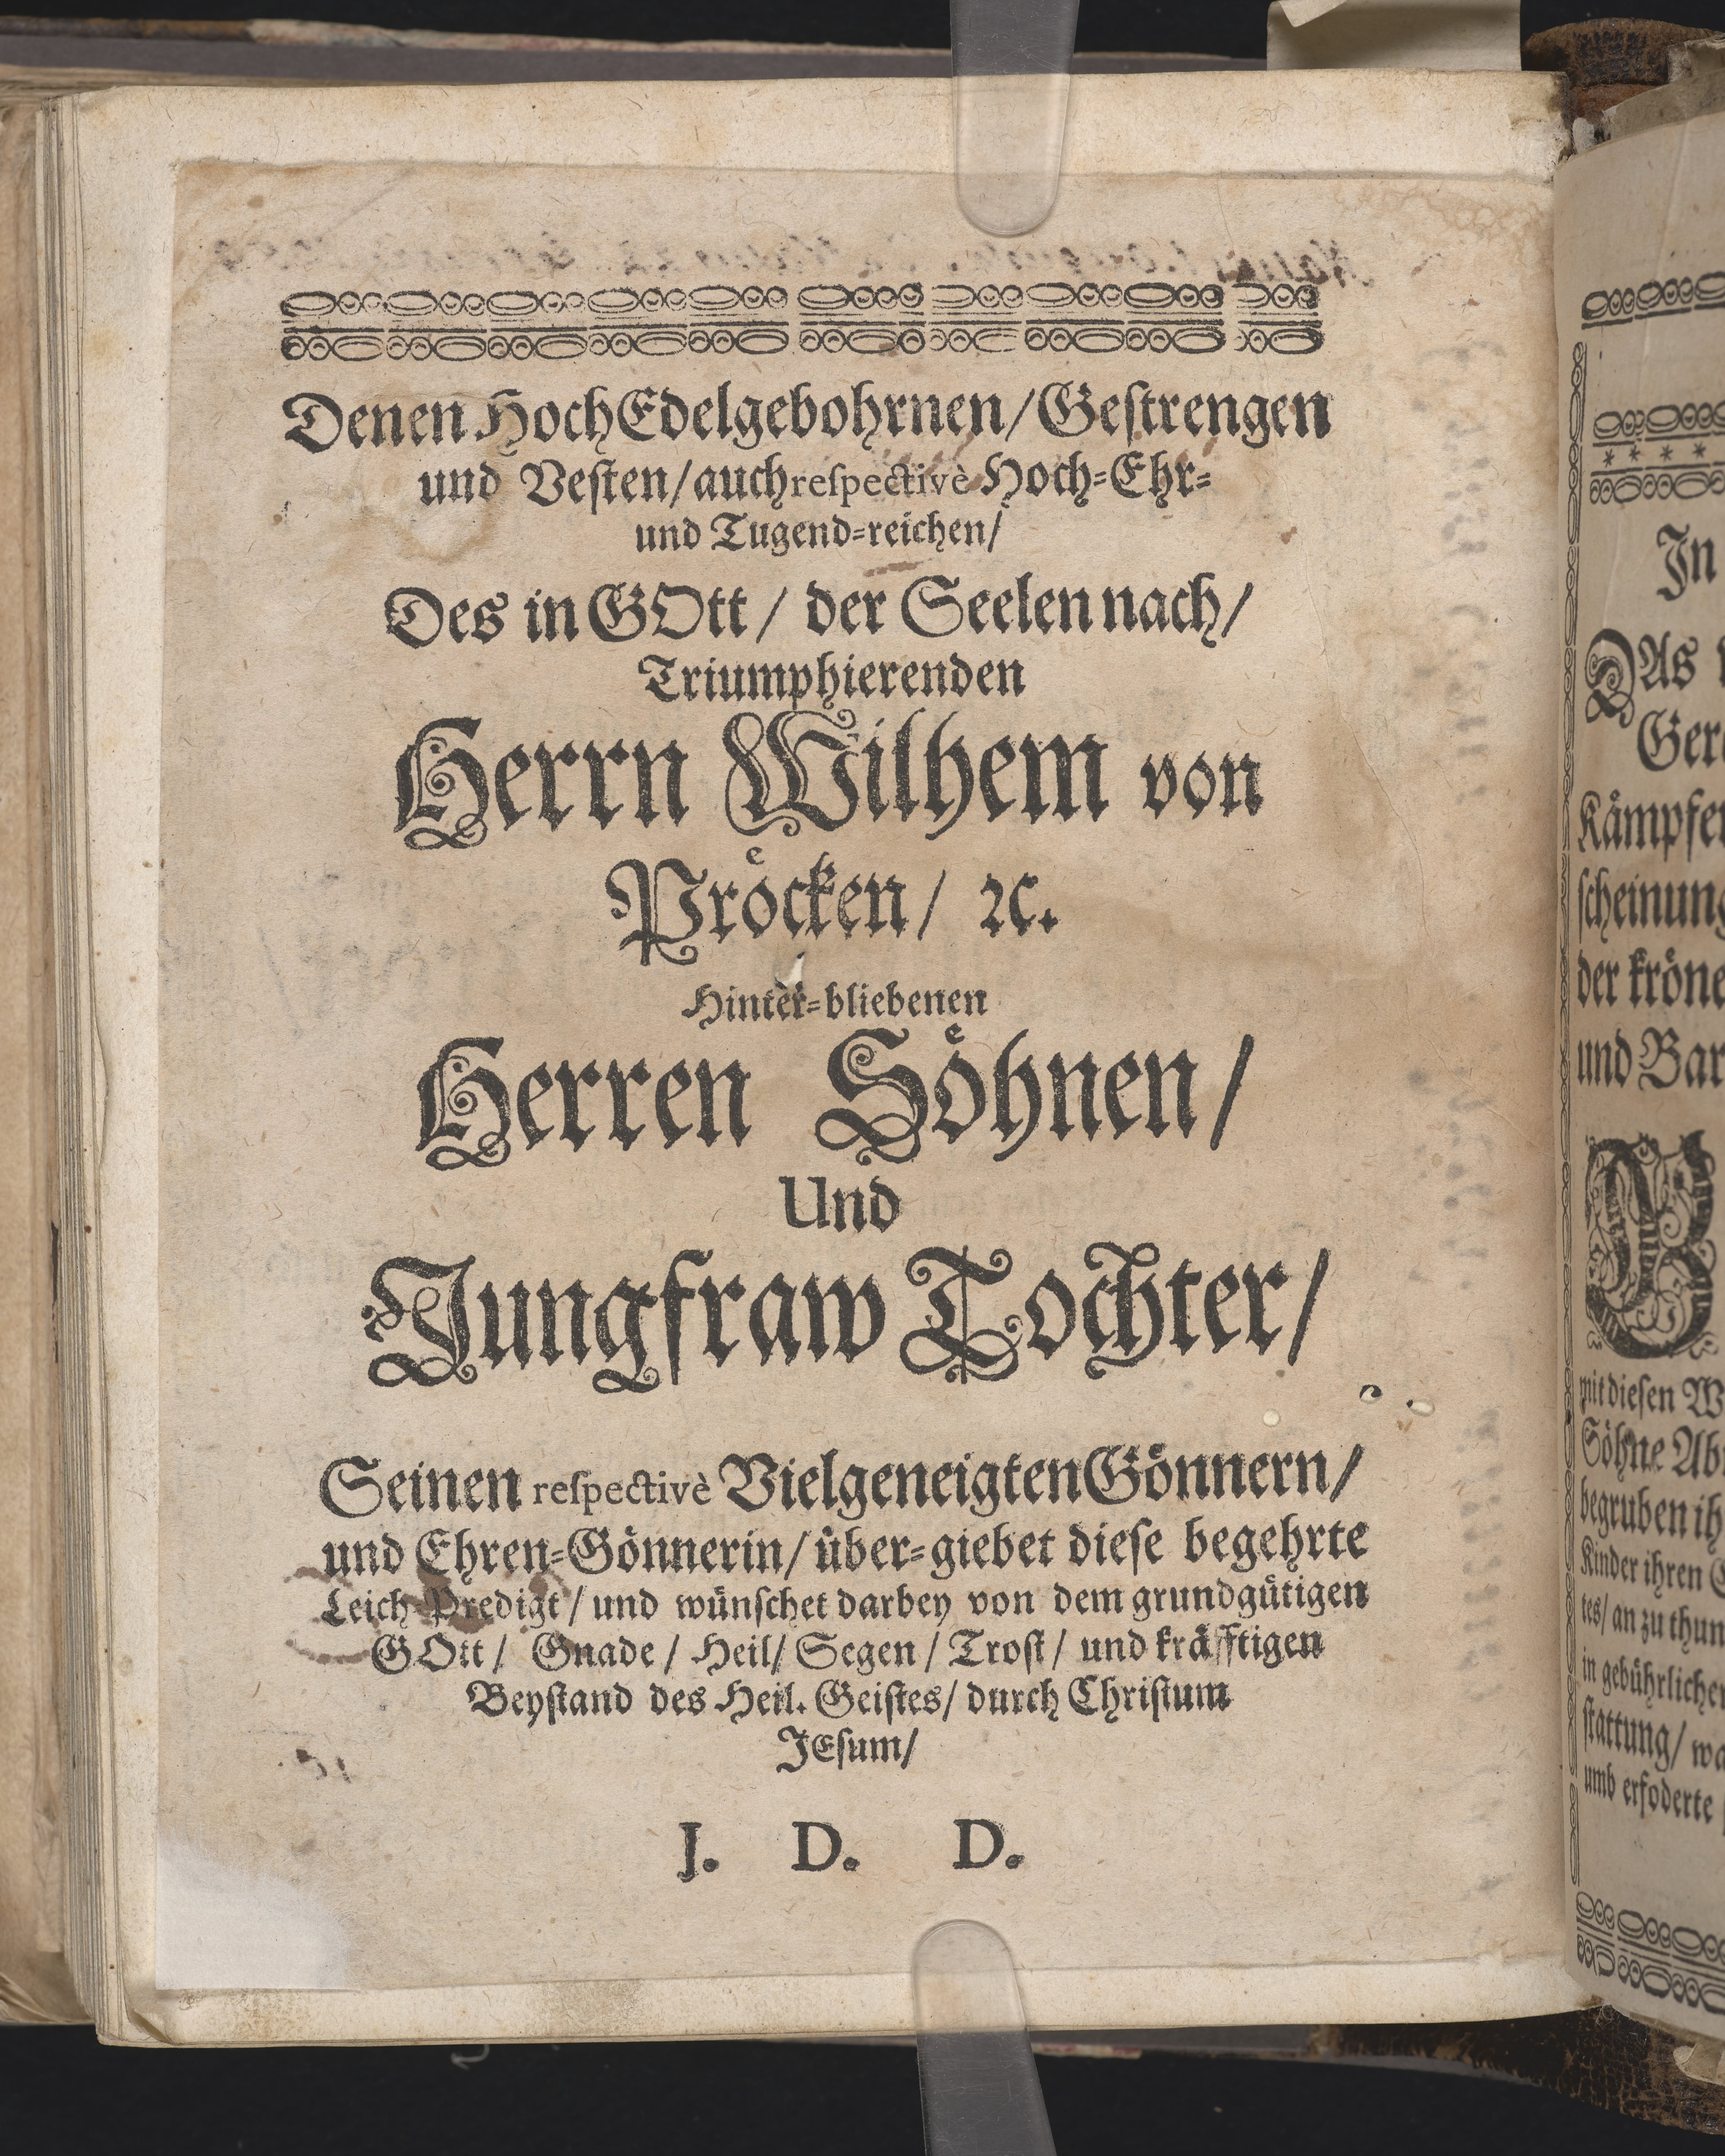 Denen HochEdelgebohrnen/Gestrengen
und Vesten/auch respectivè Hoch-Ehr-
und Tugend-reichen/
Des in GOtt/ der Seelen nach/
Triumphierenden
Herrn Wilhem von
Pröcken/ ꝛc.
Hinter-bliebenen
Herren Söhnen/
Und
Jungfraw Tochter/
Seinen respectivè Vielgeneigten Gönnern/
und Ehren-Gönnerin/ über-giebet diese begehrte
Leich Predigt/ und wünschet darbey von dem grundgütigen
GOtt/ Gnade/ Heil/ Segen/ Trost/ und kräfftigen
Beystand des Heil. Geistes/ durch Christum
JEsum/
J. D. D.
In
DAs
Kämpfer
der kröne
und Bar
mit diesen W
Söhne Abr
begruben ih
Kinder ihren
tes/ an zu thun
in gebührlicher
stattung/ wa
umb erfoderte